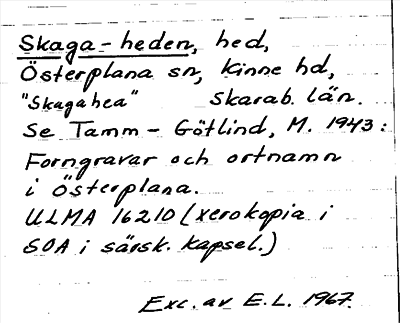 Skaga-heden, hed,
Österplana sn, Kinne hd,
"Skagahea" Skarab. län.
Se Tamm-Götlind, M. 1943:
Forngravar och ortnamn
i Österplana.
ULMA 16210 (xerokopia i
SOA i särsk. kapsel.)
Exc. av E.L. 1967.